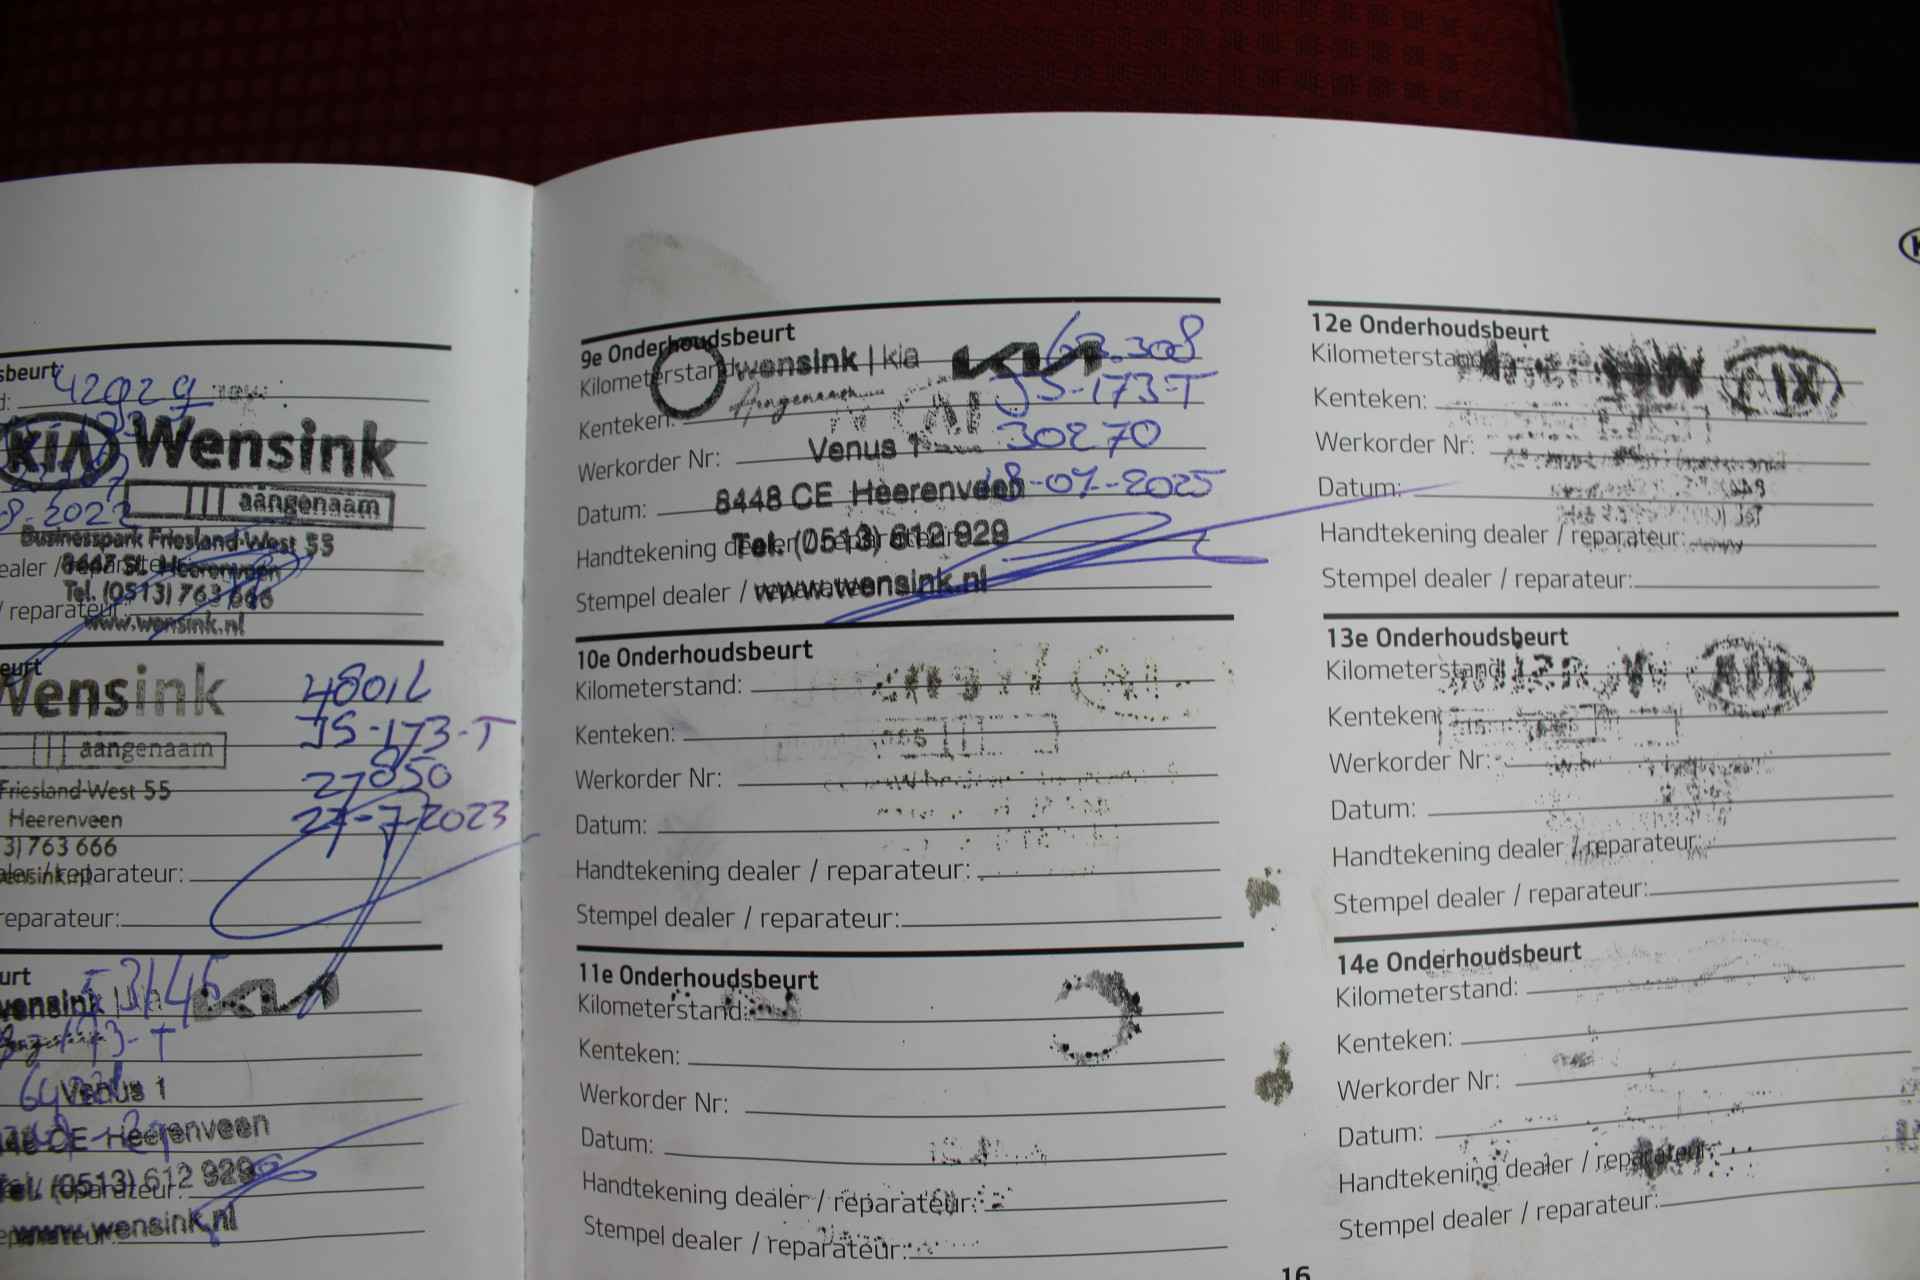 sbeurt
42029
KIA Wensink
aangenaam
8-2022
Businesspark Friesland-West 53
8447 SL Heerenveen
ealer /
Tel. (0513) 763 666
/ reparateur:
www.wensink.nl
eurt
Wensink
JS-173-T
aangenaam
27850
Friesland-West 55
27-7-2023
Heerenveen
3) 763 666
reparateur:
reparateur:
urt
53145
wensink KIA
173-T
Venus 1
CE Heerenveen
Tel. (0513) 612 929
www.wensink.nl
9e Onderhoudsbeurt
Kilometerstand: .308
wensink | kia KIA
Aangenaam
Kenteken: JS-173-T
Venus 1
Werkorder Nr: 30270
8448 CE Heerenveen
Datum: 18-07-2025
Tel. (0513) 612 929
Handtekening dealer / reparateur:
www.wensink.nl
Stempel dealer / reparateur:
10e Onderhoudsbeurt
Kilometerstand:
Kenteken:
Werkorder Nr:
Datum:
Handtekening dealer / reparateur:
Stempel dealer / reparateur:
11e Onderhoudsbeurt
Kilometerstand:
Kenteken:
Werkorder Nr:
Datum:
Handtekening dealer / reparateur:
Stempel dealer / reparateur:
12e Onderhoudsbeurt
Kilometerstand:
Kenteken:
Werkorder Nr:
Datum:
Handtekening dealer / reparateur:
Stempel dealer / reparateur:
13e Onderhoudsbeurt
Kilometerstand:
Kenteken:
Werkorder Nr:
Datum:
Handtekening dealer / reparateur:
Stempel dealer / reparateur:
14e Onderhoudsbeurt
Kilometerstand:
Kenteken:
Werkorder Nr:
Datum:
Handtekening dealer / reparateur:
Stempel dealer / reparateur:
16